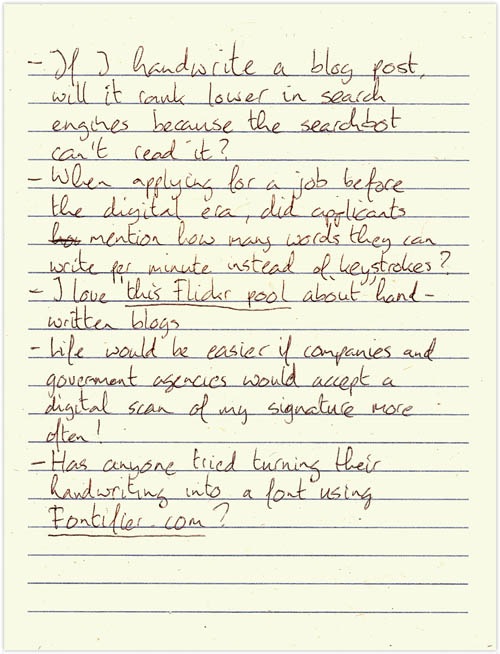 - If I handwrite a blog post,
will it rank lower in search
engines because the searchbot
can't read it?
- When applying for a job before
the digital era, did applicants
mention how many words they can
write per minute instead of keystrokes?
- I love this Flickr pool about hand-
written blogs
- Life would be easier if companies and
government agencies would accept a
digital scan of my signature more
often!
- Has anyone tried turning their
handwriting into a font using
Fontifier.com?